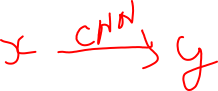 x CNN y